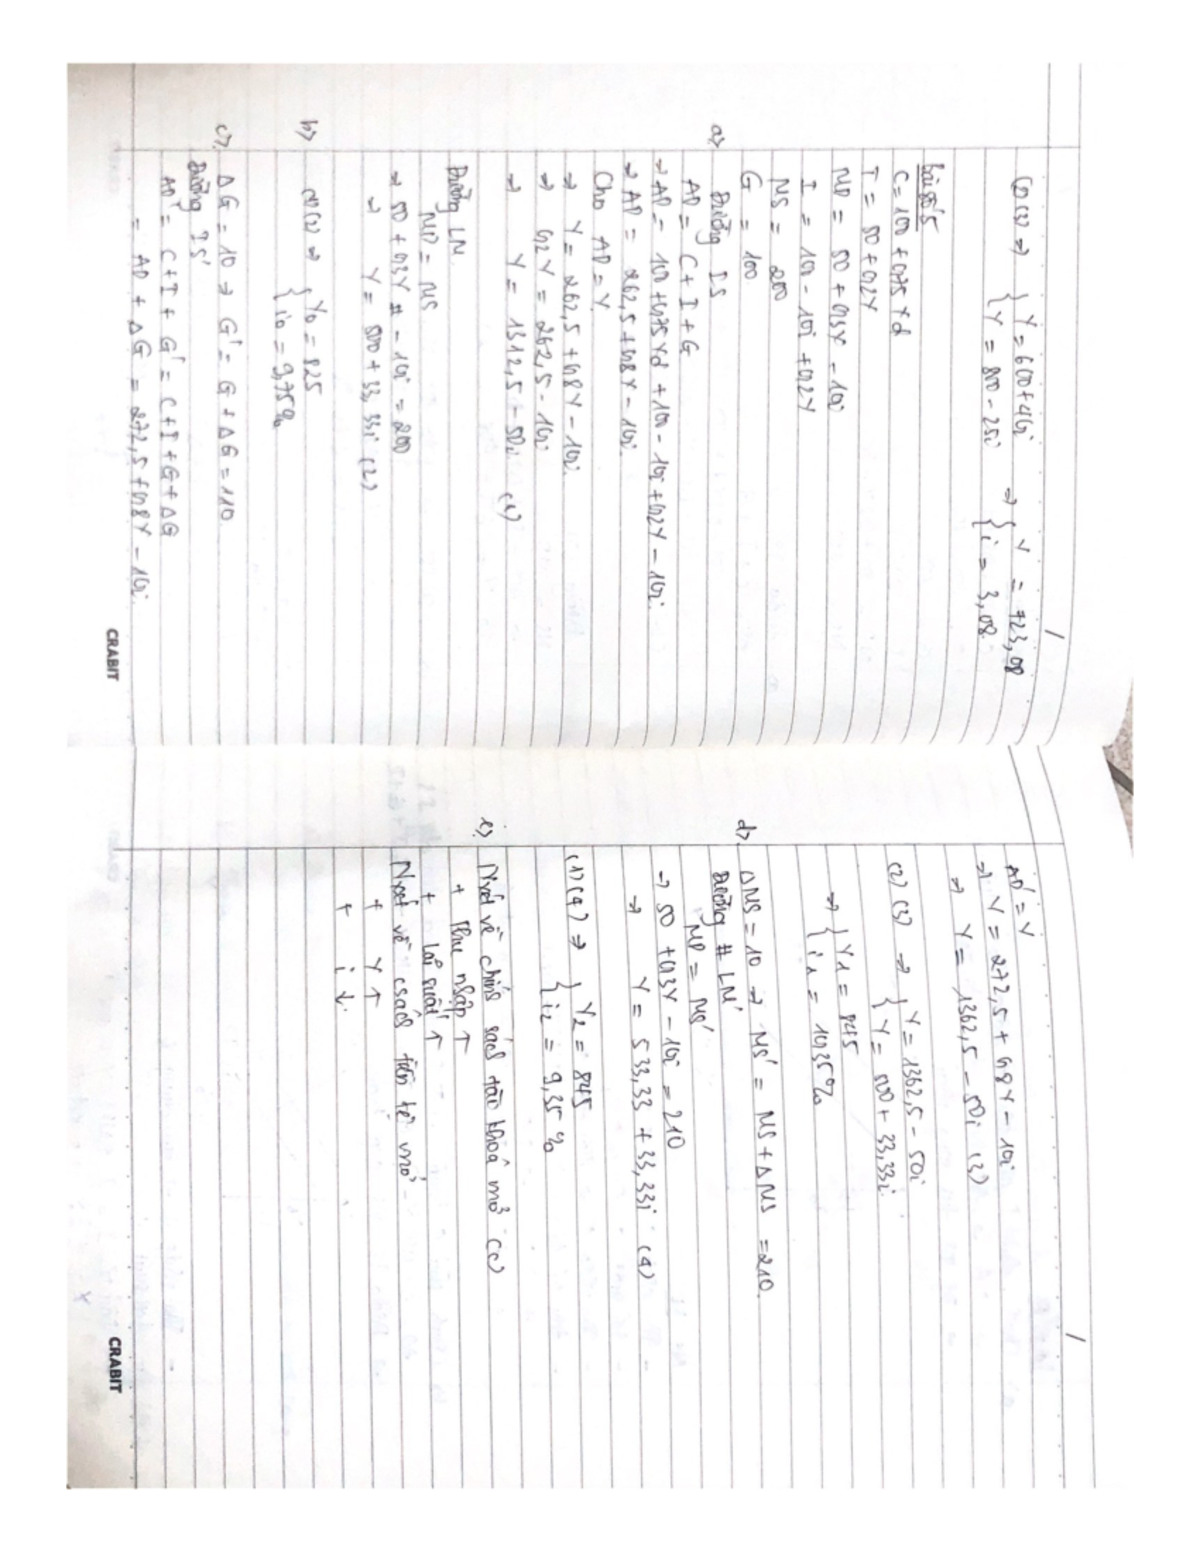 (2)(3) ⇒ { Y = 600 + 40i
{ Y = 800 - 25i ⇒ { Y = 723,08
{ i = 3,08
bài số 5
C = 100 + 0,75Yd
T = 50 + 0,2Y
MD = 50 + 0,3Y - 10i
I = 100 - 10i + 0,2Y
MS = 200
G = 100
a) Đường IS
AD = C + I + G
→ AD = 100 + 0,75Yd + 100 - 10i + 0,2Y - 10i
→ AD = 262,5 + 0,8Y - 10i
Cho AD = Y
→ Y = 262,5 + 0,8Y - 10i
→ 0,2Y = 262,5 - 10i
→ Y = 1312,5 - 50i (1)
Đường LM
MD = MS
→ 50 + 0,3Y - 10i = 200
→ Y = 500 + 33,33i (2)
b) (1)(2) → { Y0 = 825
{ i0 = 9,75%
c) ΔG = 10 → G' = G + ΔG = 110
Đường IS'
AD' = C + I + G' = C + I + G + ΔG
= AD + ΔG = 272,5 + 0,8Y - 10i
CRABIT
AD' = Y
→ Y = 272,5 + 0,8Y - 10i
→ Y = 1362,5 - 50i (3)
(2)(3) → { Y = 1362,5 - 50i
{ Y = 500 + 33,33i
→ { Y1 = 845
{ i1 = 10,35%
d) ΔMS = 10 → MS' = MS + ΔMS = 210
Đường LM'
MD = MS'
→ 50 + 0,3Y - 10i = 210
→ Y = 533,33 + 33,33i (4)
(1)(4) → { Y2 = 845
{ i2 = 9,35%
e) Nxét về chính sách tài khoá mở (c)
+ Thu nhập ↑
+ lãi suất ↑
Nxét về csách tiền tệ mở
+ Y ↑
+ i ↓
CRABIT